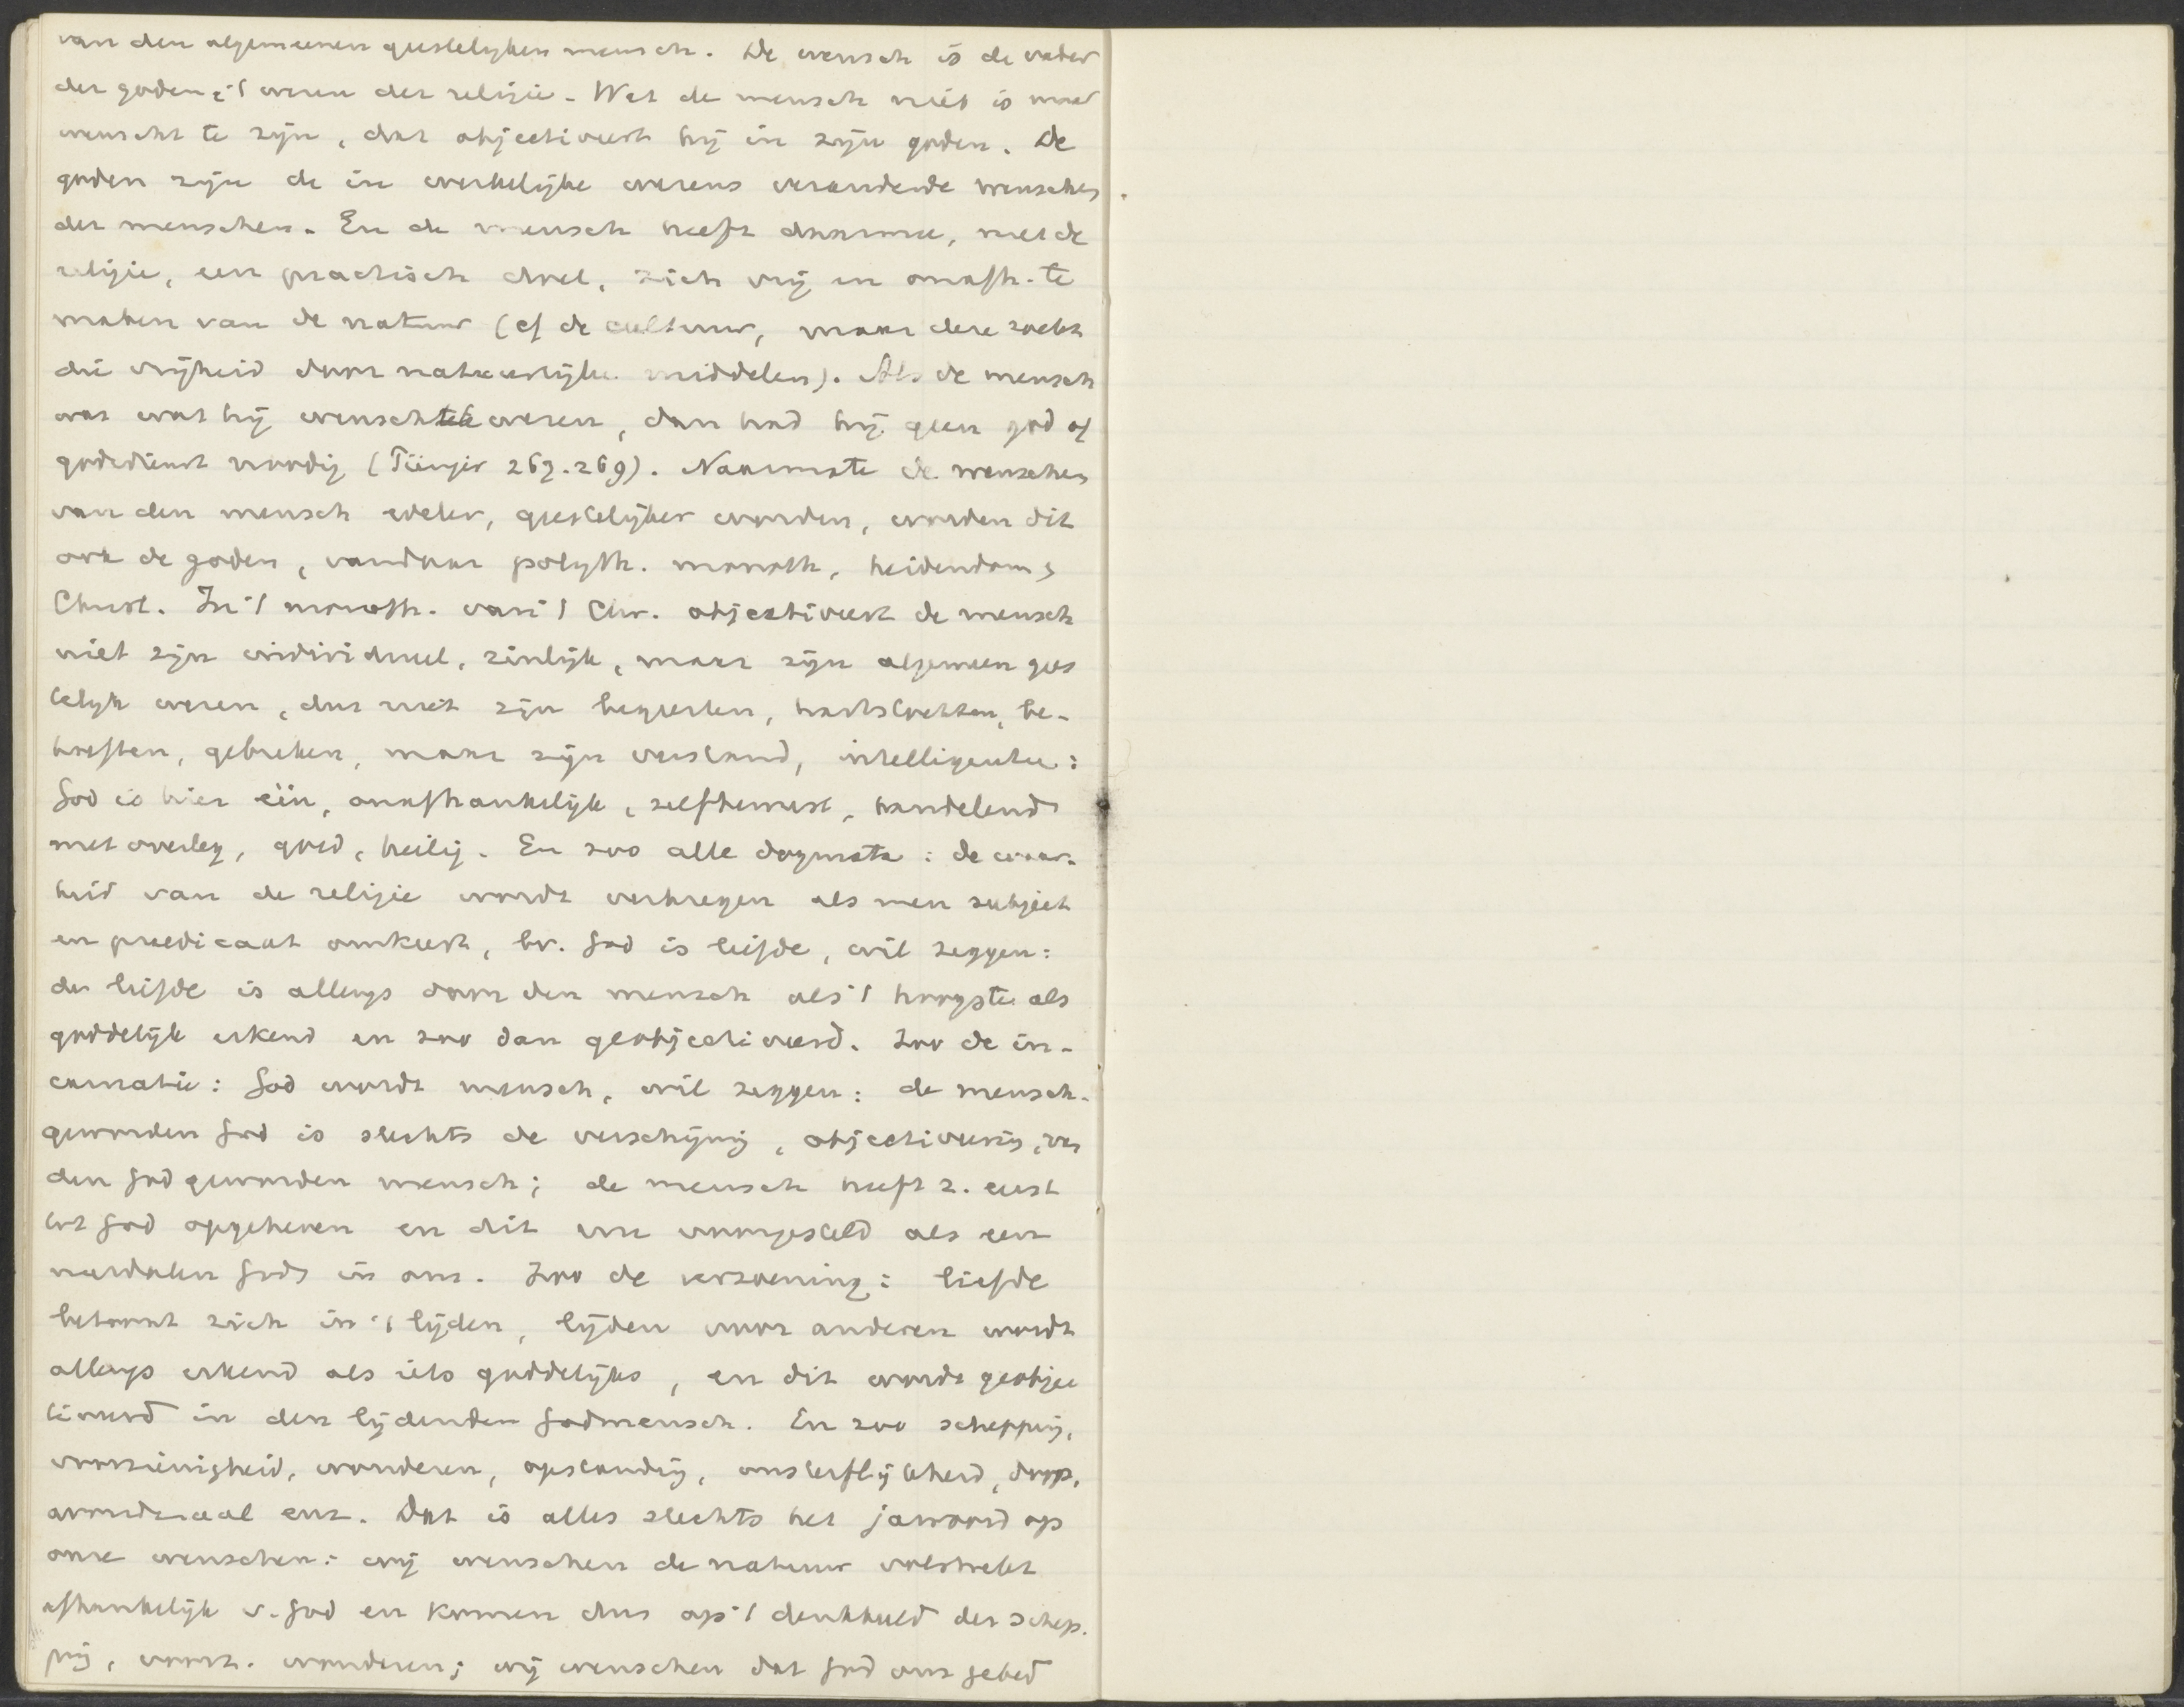 van den algemeenen geestelyken mensch. De wensch is de vader
der goden, 't wezen der religie. Wat de mensch niet is maar
wenscht te zijn, dat objectiveert hij in zijn goden. De
goden zijn de in werkelijke wezens veranderde wenschen
der menschen. En de mensch heeft daarmee, met de
religie, een practisch doel, zich vrij en onafh. te
maken van de natuur (of de cultuur, maar deze zoekt
die vrijheid door natuurlijke middelen). Als de mensch
was wat hij wenschte te wezen, dan had hij geen god of
godsdienst noodig (Pünjer 263-269). Naarmate de wenschen
van den mensch edeler, geestelijker worden, worden dit
ook de goden, vandaar polyth. monoth, heidendom,
Christ. In 't monoth. van 't Chr. objectiveert de mensch
niet zijn individueel, zinlijk, maar zijn algemeen gees
telijk wezen, dus niet zijn begeerten, hartstochten, be-
hoeften, gebreken, maar zijn verstand, intelligentie:
God is hier één, onafhankelijk, zelfbewust, handelend
met overleg, goed, heilig. En zoo alle dogmata: de waar-
heid van de religie wordt verkregen als men subject
en praedicaat omkeert, bv. God is liefde, wil zeggen:
de liefde is allengs door den mensch als 't hoogste als
goddelijk erkend en zoo dan geobjectiveerd. Zoo de in-
carnatie: God wordt mensch, wil zeggen: de mensch-
geworden God is slechts de verschijning, objectivering, van
den God geworden mensch; de mensch heeft z. eerst
tot God opgeheven en dit nu voorgesteld als een
nederdalen Gods in ons. Zoo de verzoening: liefde
betoont zich in 't lijden, lijden voor anderen wordt
allengs erkend als iets goddelijks, en dit wordt geobjec
tiveerd in den lijdenden Godmensch. En zoo schepping,
voorzienigheid, wonderen, opstanding, onsterflijkheid, doop,
avondmaal enz. Dat is alles slechts het jawoord op
onze wenschen: wij wenschen de natuur volstrekt
afhankelijk v. God en komen dus op 't denkbeeld der schep-
ping, voorz. wonderen; wij wenschen dat God ons gebed